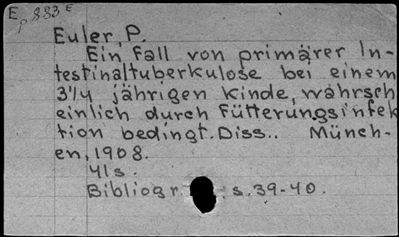 E
p 883 E
Euler, P.
Ein Fall von primärer In-
testinaltuberkulose bei einem
3 1/4 jährigen Kinde, wahrsch
einlich durch Fütterungsinfek
tion bedingt. Diss.. Münch-
en, 1908.
41 s.
Bibliogr. s. 39-40.